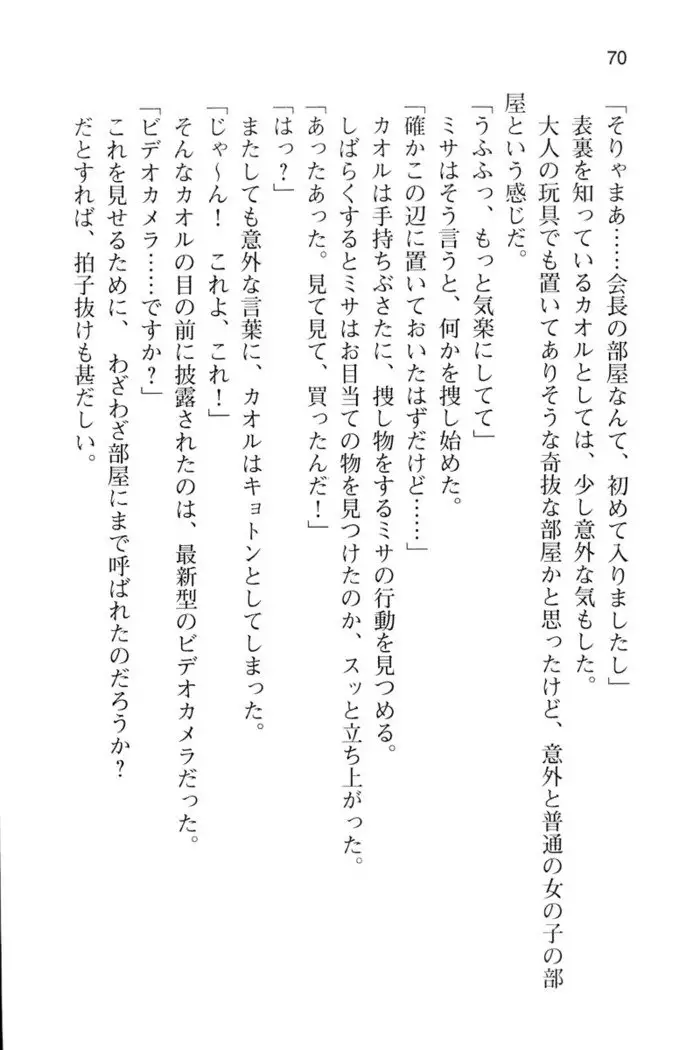 70
「そりゃまあ……会長の部屋なんて、初めて入りましたし」
表裏を知っているカオルとしては、少し意外な気もした。
大人の玩具でも置いてありそうな奇抜な部屋かと思ったけど、意外と普通の女の子の部
屋という感じだ。
「うふふっ、もっと気楽にしてて」
ミサはそう言うと、何かを捜し始めた。
「確かこの辺に置いておいたはずだけど……」
カオルは手持ちぶさたに、捜し物をするミサの行動を見つめる。
しばらくするとミサはお目当ての物を見つけたのか、スッと立ち上がった。
「あったあった。見て見て、買ったんだ！」
「はっ？」
またしても意外な言葉に、カオルはキョトンとしてしまった。
「じゃ〜ん！　これよ、これ！」
そんなカオルの目の前に披露されたのは、最新型のビデオカメラだった。
「ビデオカメラ……ですか？」
これを見せるために、わざわざ部屋にまで呼ばれたのだろうか？
だとすれば、拍子抜けも甚だしい。